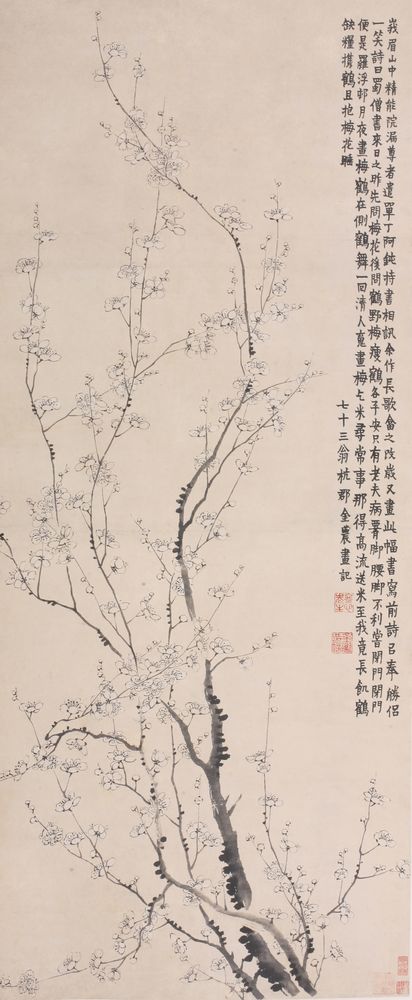 峩眉山中精能院漏尊者遣單丁阿鈍持書相訊余作長歌畣之改歲又畫此幅書寫前詩已奉勝侶
一笑詩曰蜀僧書來日之昨先問梅花後問鶴野梅瘦鶴各平安只有老夫病腰脚腰脚不利嘗閉門閉門
便是羅浮邨月夜畫梅鶴在側鶴舞一回清人寬畫梅乞米尋常事那得高流送米至我竟長飢鶴
缺糧攜鶴且抱梅花睡
七十三翁杭郡金農畫記